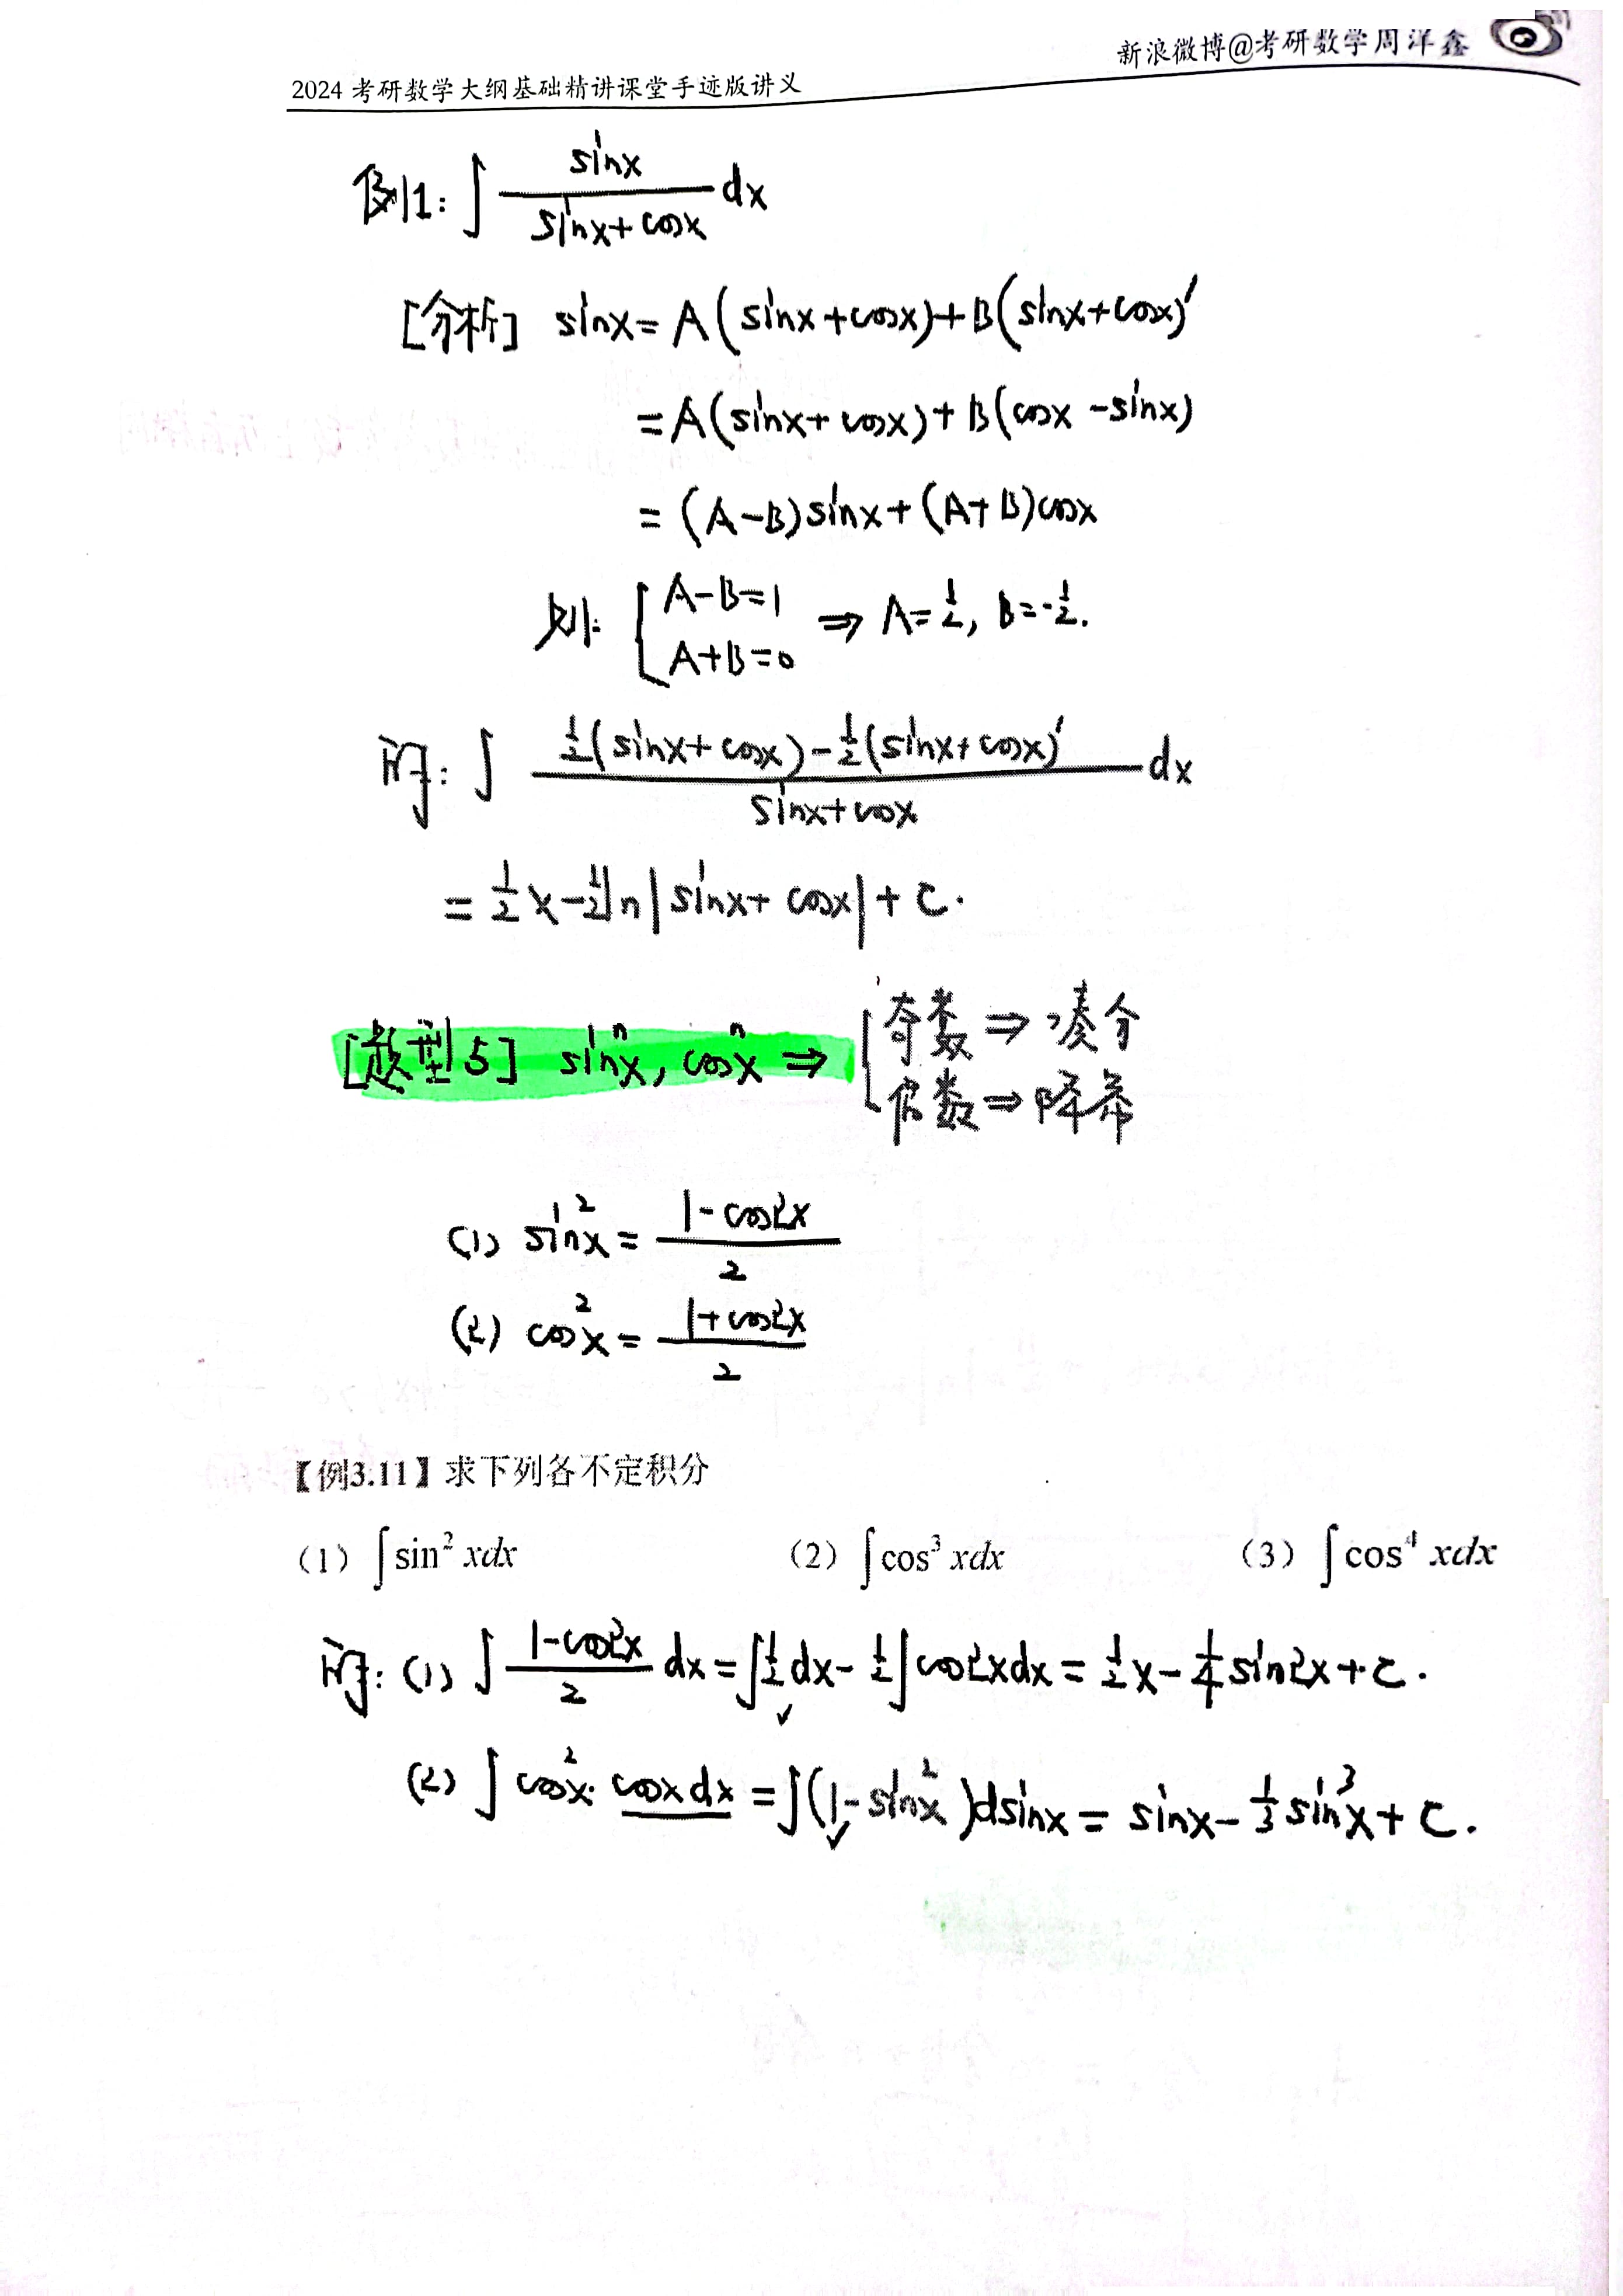 新浪微博@考研数学周洋鑫
2024 考研数学大纲基础精讲课堂手迹版讲义
例1: ∫ sinx/(sinx+cosx) dx
[分析] sinx=A(sinx+cosx)+B(sinx+cosx)′
=A(sinx+cosx)+B(cosx-sinx)
=(A-B)sinx+(A+B)cosx
则: { A-B=1 ⇒ A=1/2, B=-1/2.
A+B=0
所: ∫ [1/2(sinx+cosx)-1/2(sinx+cosx)′]/(sinx+cosx) dx
= 1/2 x - 1/2 ln|sinx+cosx|+C.
[题型5] sinⁿx, cosⁿx ⇒ { 奇数 ⇒ 凑分
偶数 ⇒ 降幂
(1) sin²x = (1-cos2x)/2
(2) cos²x = (1+cos2x)/2
【例3.11】求下列各不定积分
（1）∫sin² xdx （2）∫cos³ xdx （3）∫cos⁴ xdx
所: (1) ∫ (1-cos2x)/2 dx = ∫1/2 dx - 1/2∫cos2xdx = 1/2 x - 1/4 sin2x+C.
(2) ∫ cos²x·cosxdx = ∫(1-sin²x)dsinx = sinx - 1/3 sin³x + C.